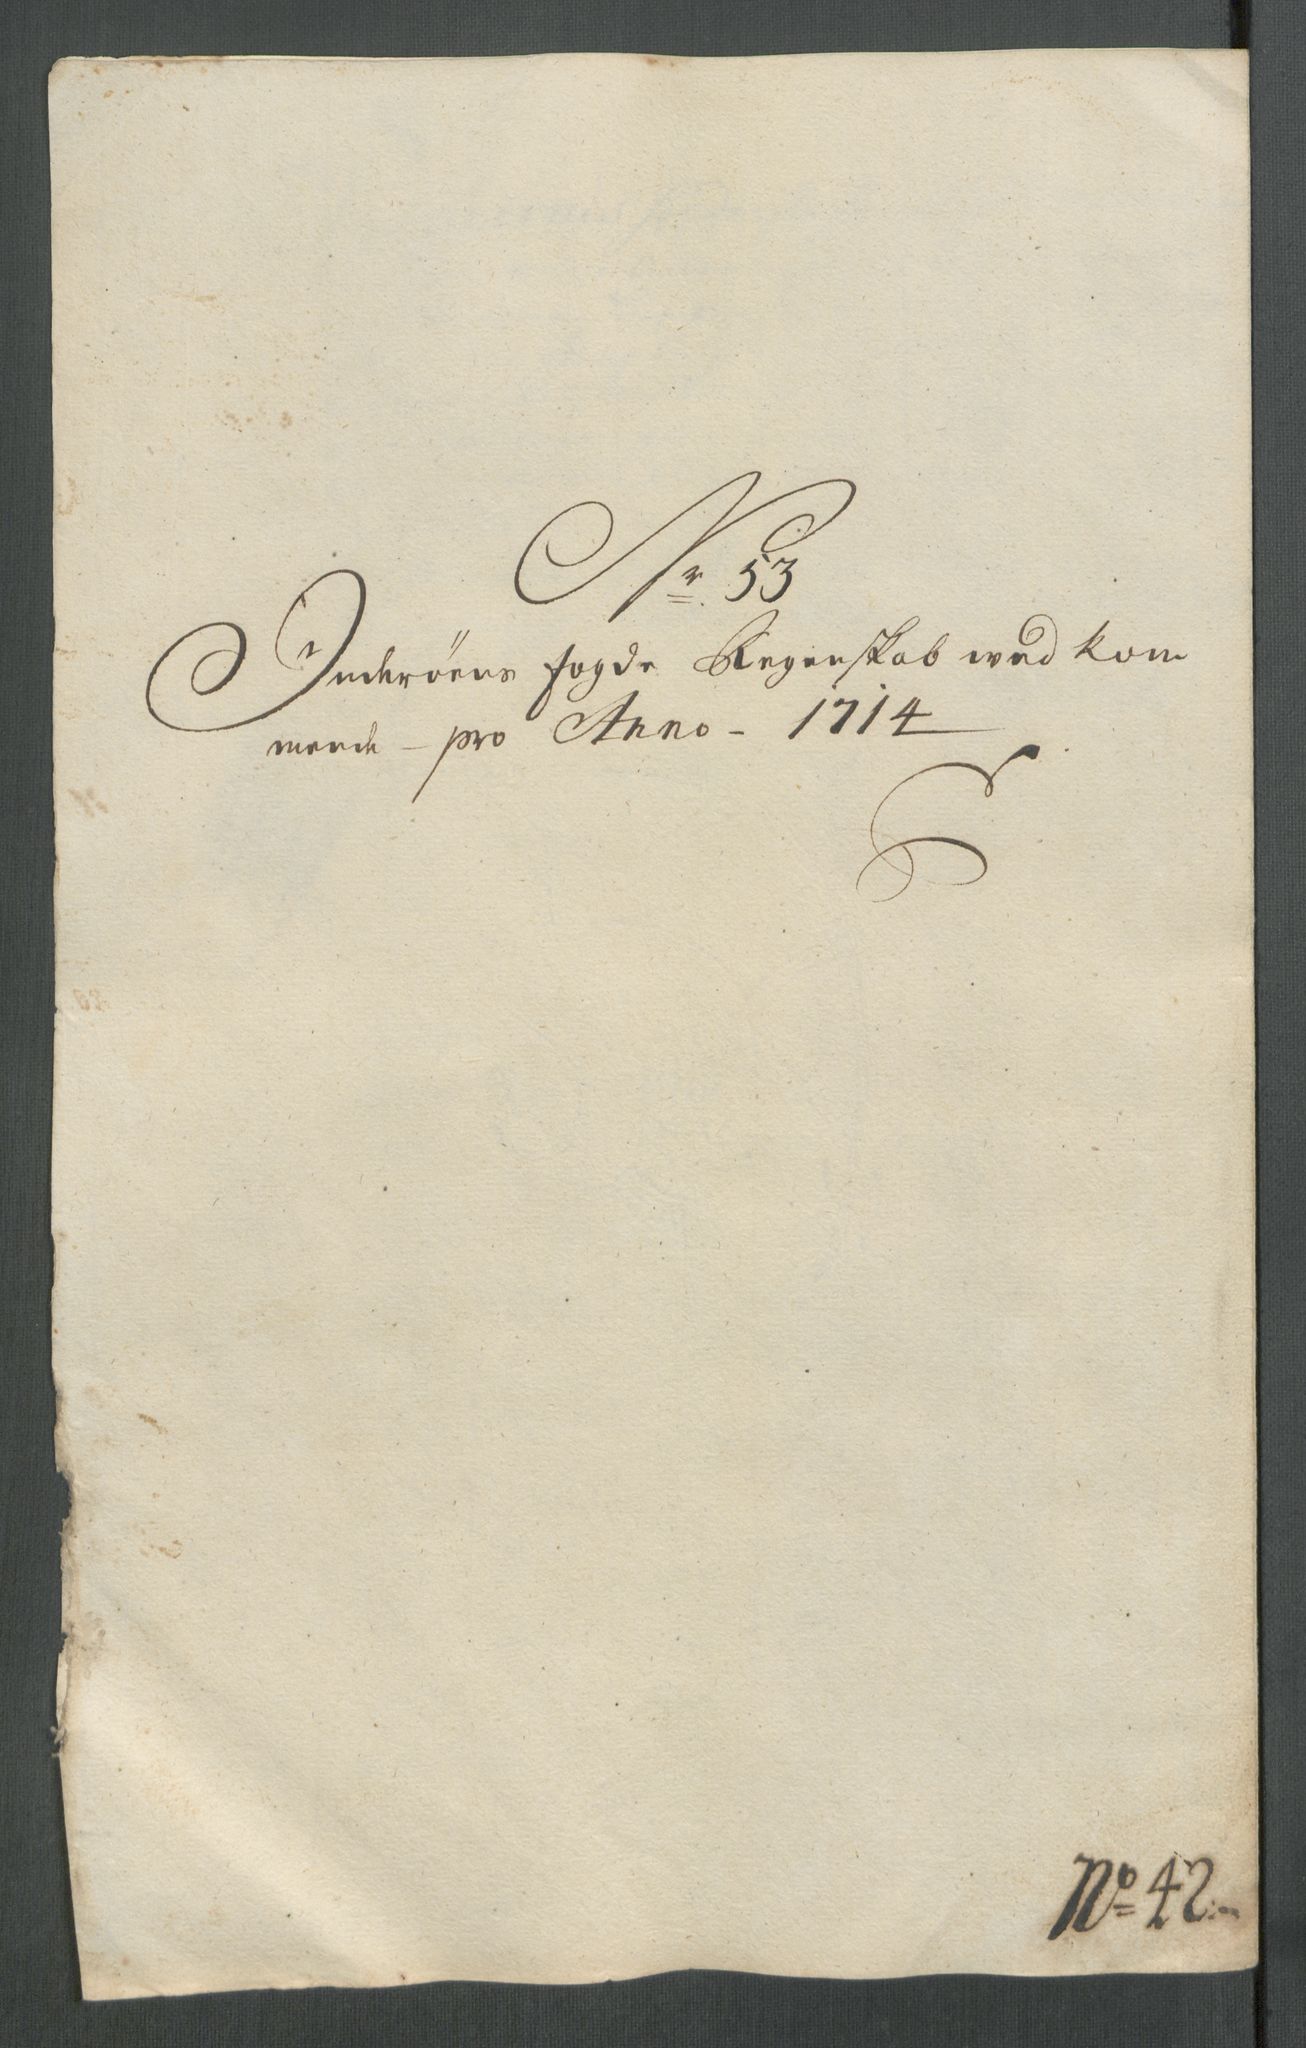 Nr. 53
Inderöens fogde Regenskab wed kom
mende - pro Anno - 1714
No 42